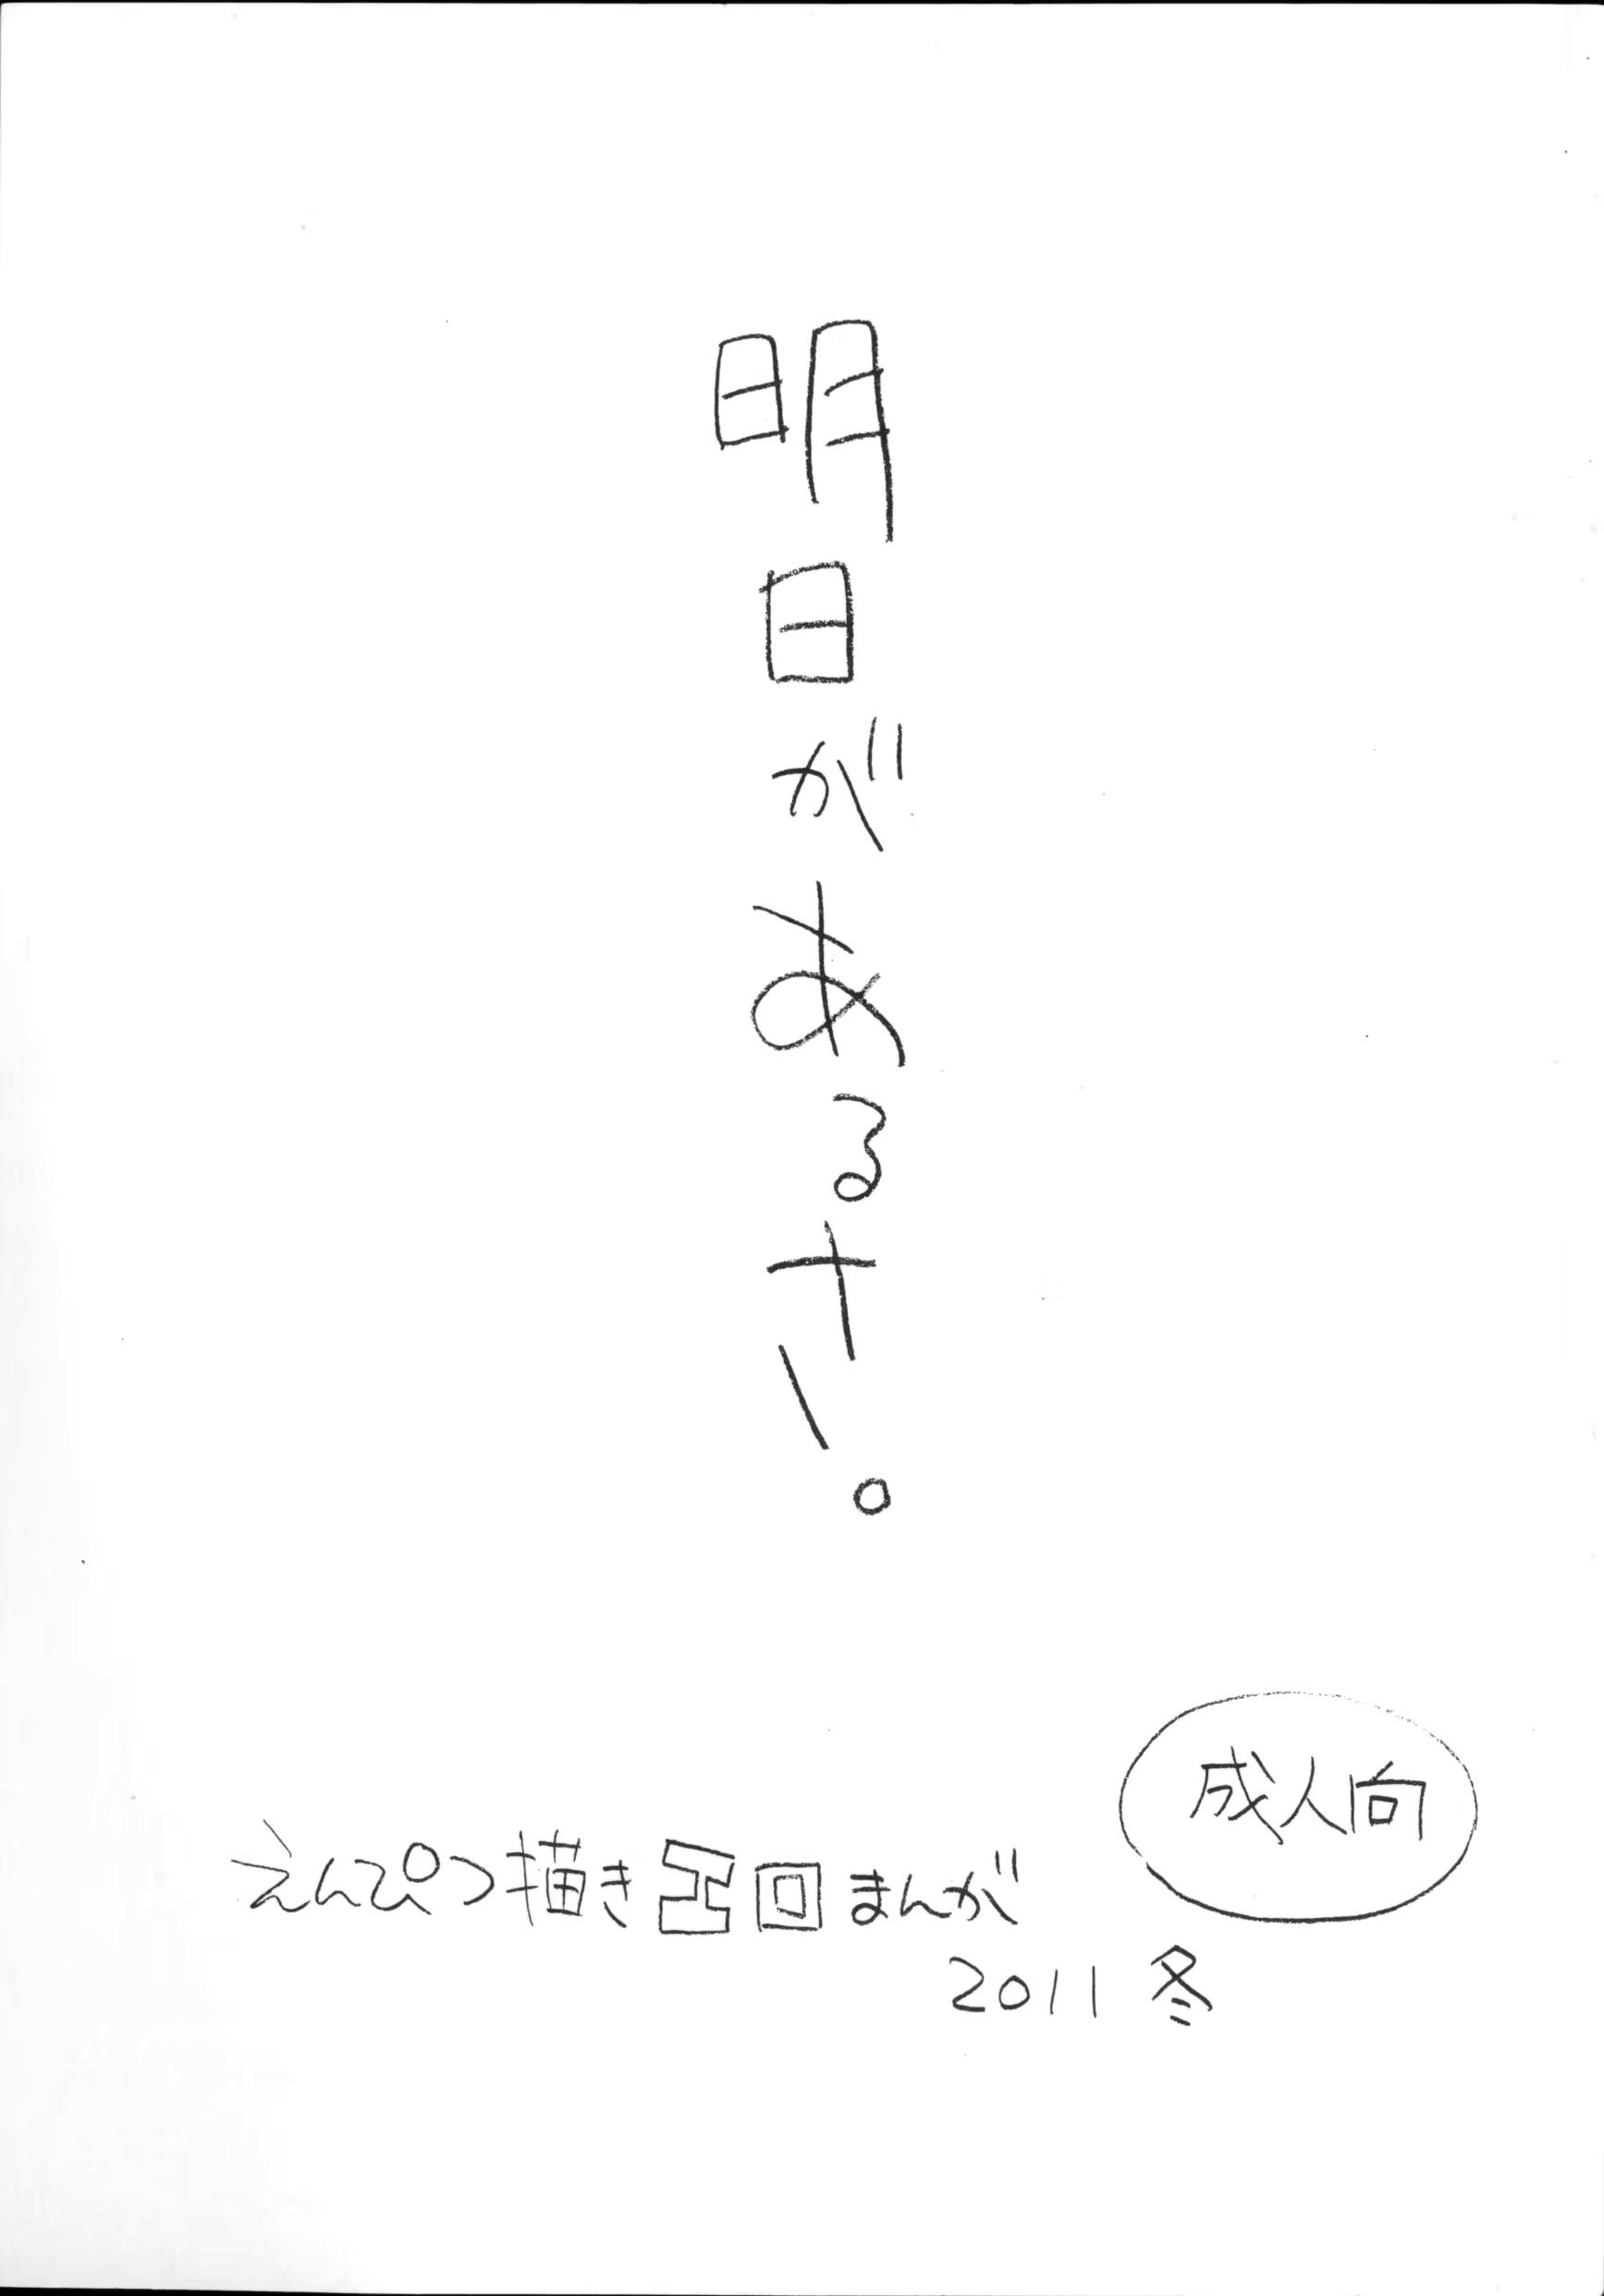 明日があるさ。
成人向
えんぴつ描き凸回まんが
2011 冬